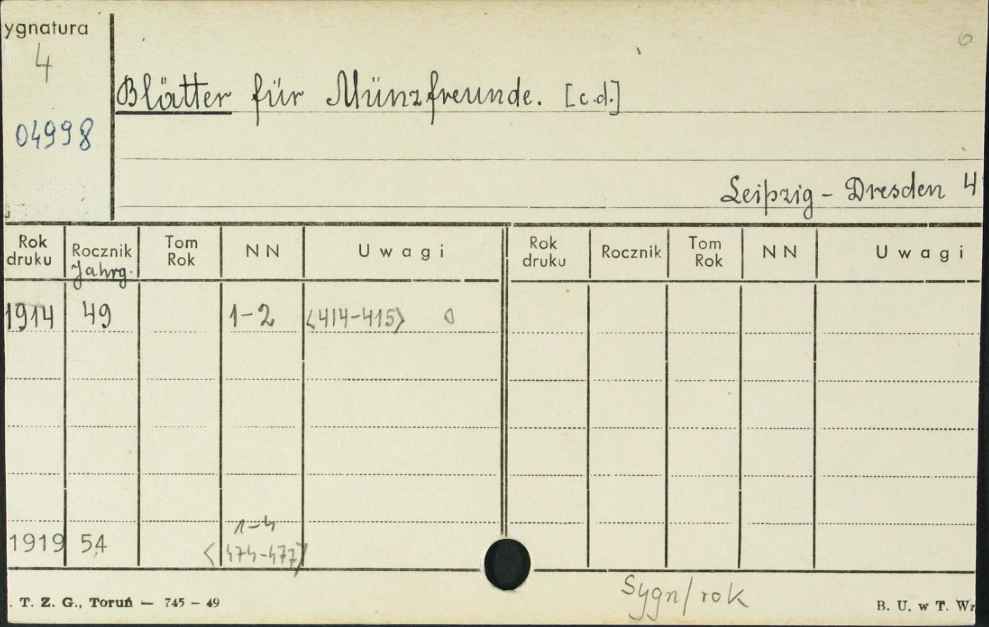 ygnatura
4
04998
Blätter für Münzfreunde. [c.d.]
Leipzig - Dresden 4
Rok druku Rocznik Tom Rok NN Uwagi Rok druku Rocznik Tom Rok NN Uwagi
Jahrg.
1914 49 1-2 <414-415> 0
1-4
1919 54 <474-477>
. T. Z. G., Toruń — 745 - 49
Sygn/rok
B. U. w T. Wr